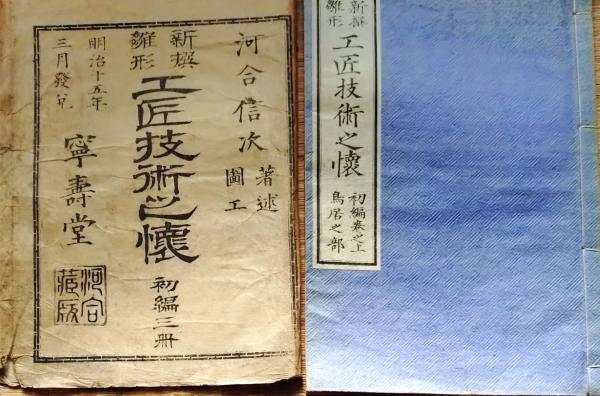 河合信次 著述
圖工
新撰
雛形
工匠技術之懷
初編三冊
明治十五年
三月發兌
寧壽堂
河合
藏版
新撰
雛形
工匠技術之懷
初編卷之上
鳥居之部